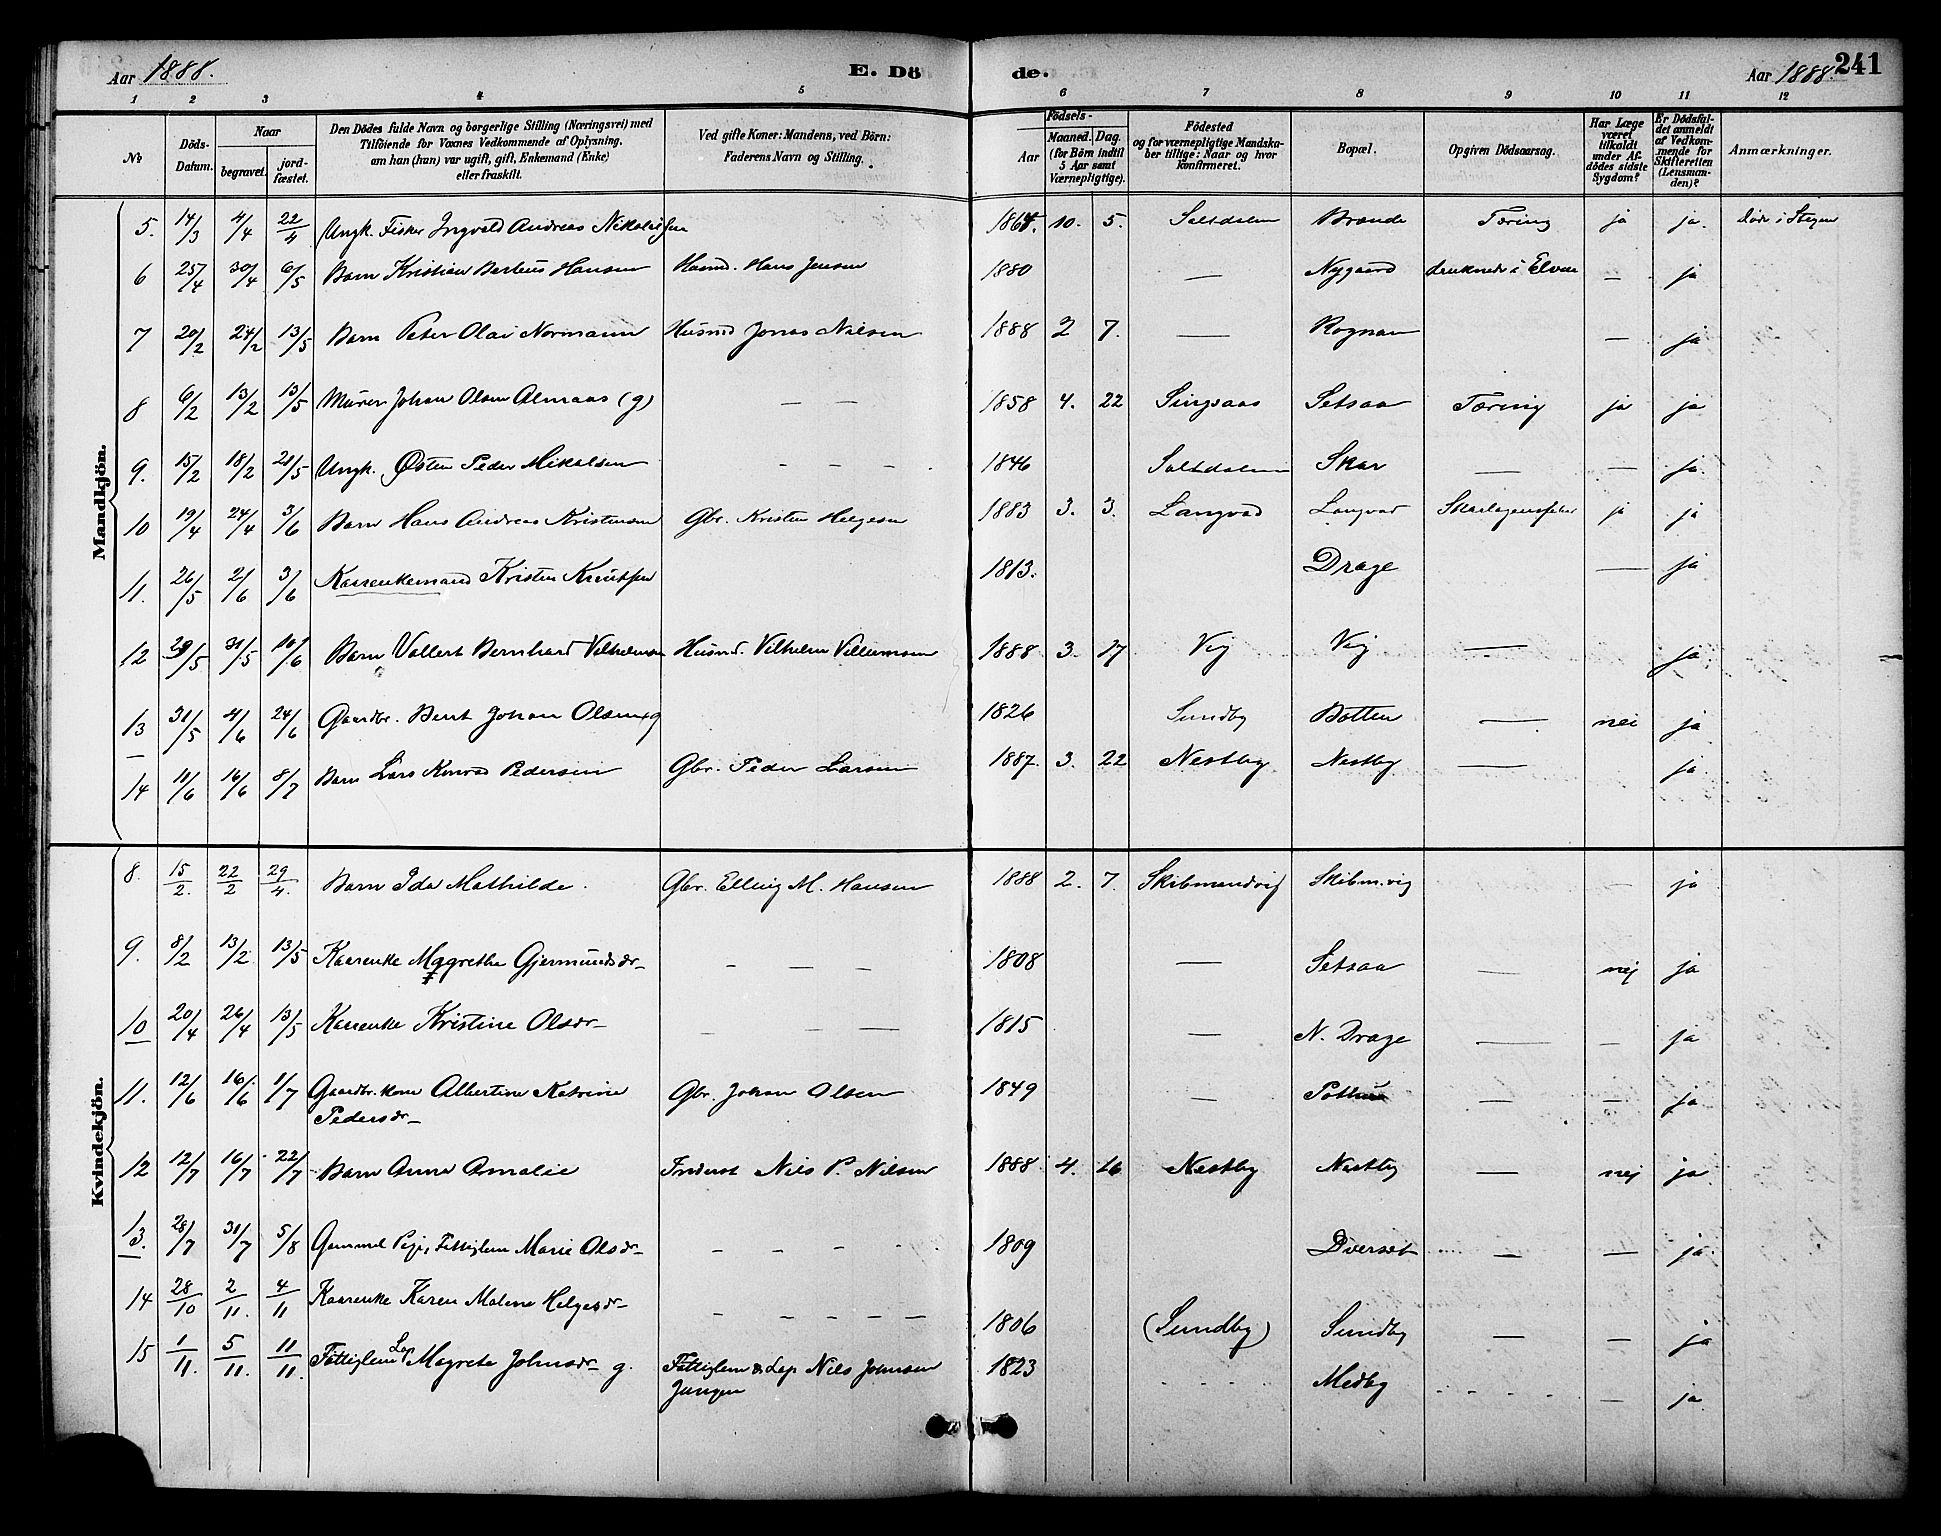 Aar 1888. E. Dö de. Aar 1888. 241
1 2 3 4 5 6 7 8 9 10 11 12
No Döds-Datum. Naar begravet. jordfæstet. Den Dödes fulde Navn og borgerlige Stilling (Næringsvei) med Tilföiende for Voxnes Vedkommende af Oplysning, om han (hun) var ugift, gift, Enkemand (Enke) eller fraskilt. Ved gifte Koner: Mandens, ved Börn: Faderens Navn og Stilling. Födsels- Aar Maaned. Dag. (for Börn indtil 5 Aar samt Værnepligtige). Födested og for værnepligtige Mandskaber tillige: Naar og hvor konfirmeret. Bopæl. Opgiven Dödsaarsag. Har Læge været tilkaldt under Afdödes sidste Sygdom? Er Dödsfaldet anmeldt af Vedkommende for Skifteretten (Lensmanden)? Anmærkninger.
Mandkjön.
5. 14/3 4/4 22/4 Ungk. Fisker Ingvald Andreas Nikolaisen 1864 10. 5. Saltdalen Brænde Tæring ja ja. døde i Steigen
6 25/4 30/4 6/5 Barn Kristian Berteus Hansen Husmd. Hans Jensen 1880 — Nygaard druknede i Elven — ja
7 20/2 24/2 13/5 Barn Peter Olai Normann Husmd Jonas Nilsen 1888 2 7. — Rognan — ja
8 6/2 13/2 13/5 Murer Johan Olsen Almaas (g) — — 1858 4. 22 Singsaas Setsaa Tæring ja ja
9. 15/2 18/2 21/5 Ungk. Østen Peder Mikalsen - - - . 1846 Saltdalen Skar — — ja.
10 19/4 24/4 3/6 Barn Hans Andreas Kristensen Gbr. Kristen Helgesen 1883 3. 3. Langvad Langvad Skarlagensfeber ja ja
11. 26/5 2/6 3/6 Kaarenkemand Kristen Knutsen 1813. Drage — ja
12 29/5 31/5 10/6 Barn Vollert Bernhard Vilhelmsen Husmd. Vilhelm Villumsen 1888 3. 17 Vig Vig — ja.
13 31/5 4/6 24/6 Gaardbr. Bent Johan Olsen g 1826 Sundby Botten — nei ja
14 11/6 16/6 8/7 Barn Lars Konrad Pedersen Gbr. Peder Larsen 1887. 3. 22 Nestby Nestby — ja.
Kvindekjön.
8. 15/2. 22/2 29/4. Barn Ida Mathilde. Gbr. Elling M. Hansen 1888 2. 7. Skibmandvig Skibm.vig — ja
9. 8/2 13/2 13/5 Kaarenke Magrethe Gjermundsdr — — — 1808 — Setsaa — nej ja
10 20/4 26/4 13/5 Kaarenke Kristine Olsdr — — — 1815 — N. Drage — — ja
11. 12/6 16/6 1/7 Gaardbr. kone Albertine Katrine Gbr. Johan Olsen 1849 — Pothus — — ja
Pedersdr
12 12/7 16/7 22/7 Barn Anna Amalie Inderst Nils P. Nilsen 1888. 4. 16 Nestby Nestby — nej ja.
13. 28/7 31/7 5/8 Gammel Pige, Fattiglem Marie Olsdr — — — - 1809 Dverset — — ja
14 28/10 2/11. 4/11 Kaarenke Karen Malene Helgesdr — — — — — 1806 (Sundby) Sundby — — ja
15 1/11. 5/11. 11/11. Fattiglem Lap Magrete Johnsdr g. Fattiglem & Lap Nils Johnsen 1823 - - - - Medby - - - - — ja.
Jungen